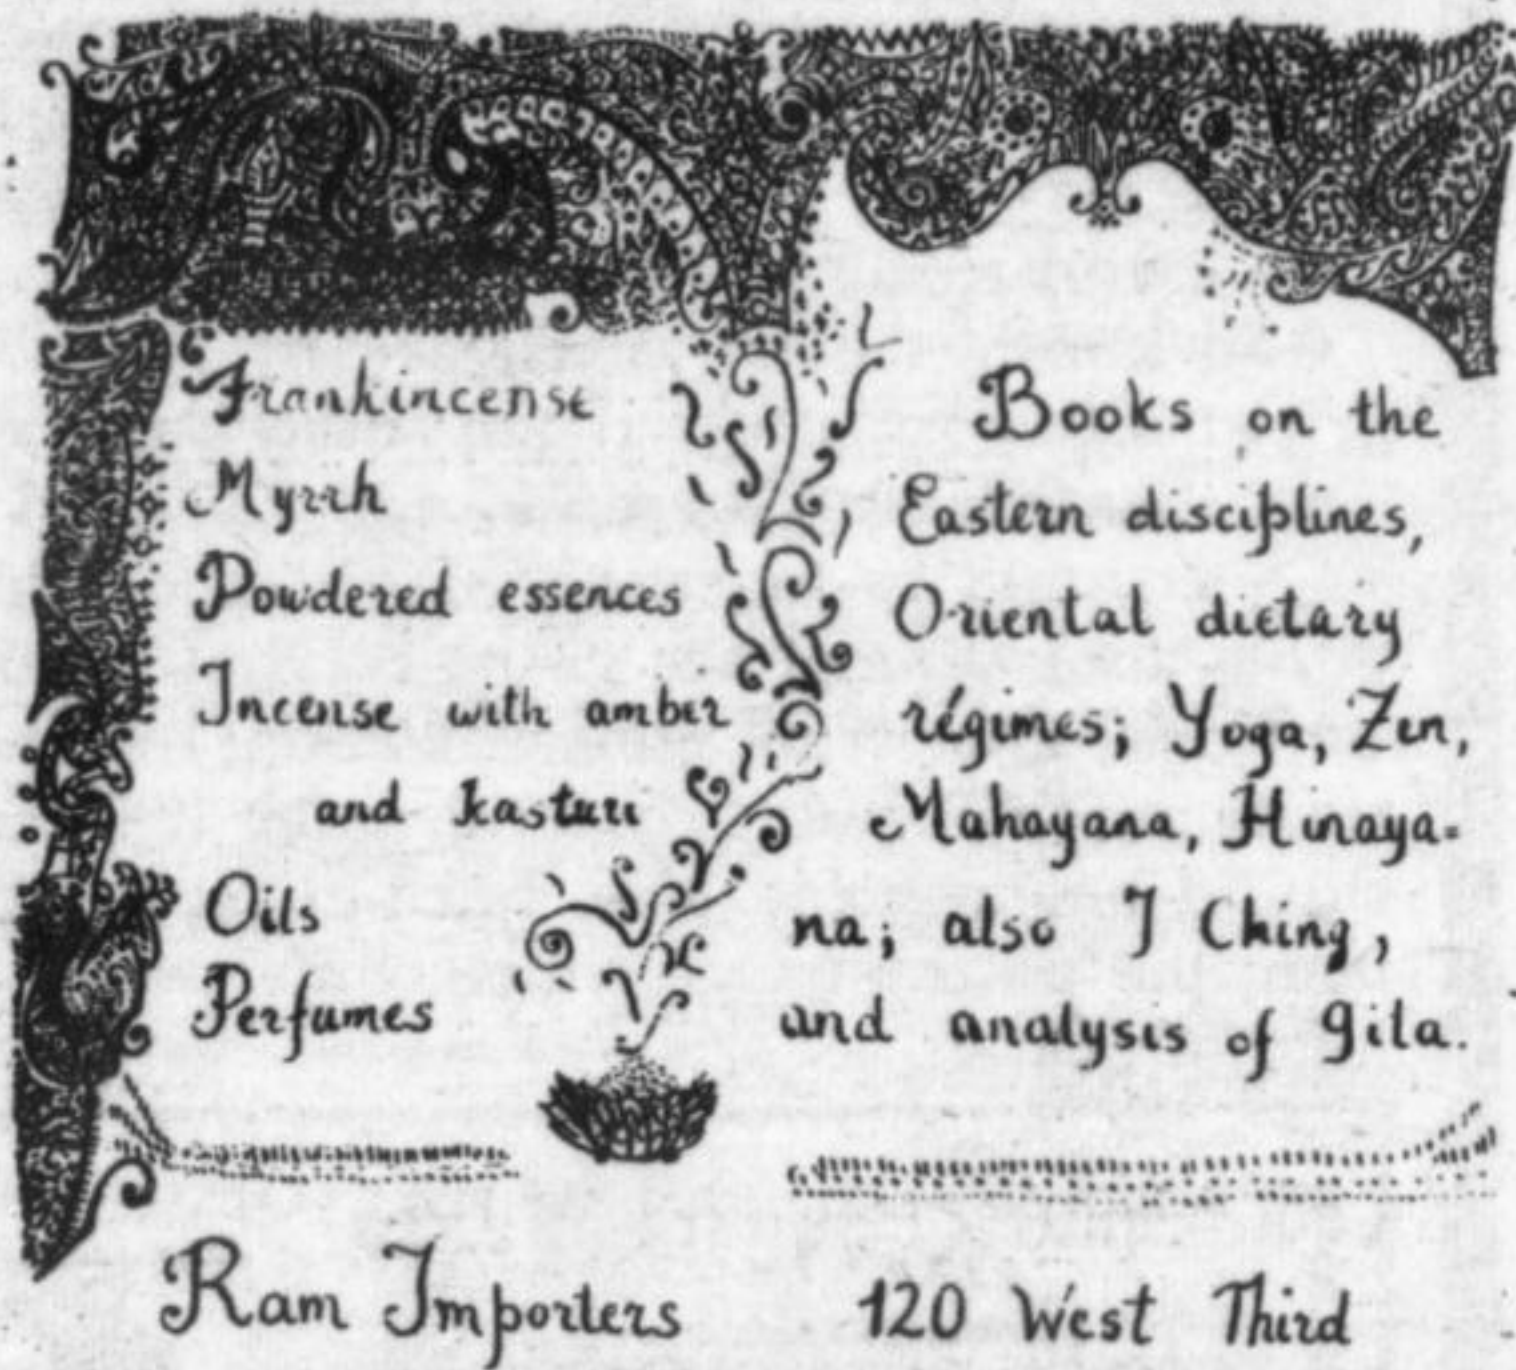 Frankincense
Myrrh
Powdered essences
Incense with amber
and kasturi
Oils
Perfumes
Books on the
Eastern disciplines,
Oriental dietary
régimes; Yoga, Zen,
Mahayana, Hinaya-
na; also I Ching,
and analysis of gita.
Ram Importers
120 West Third